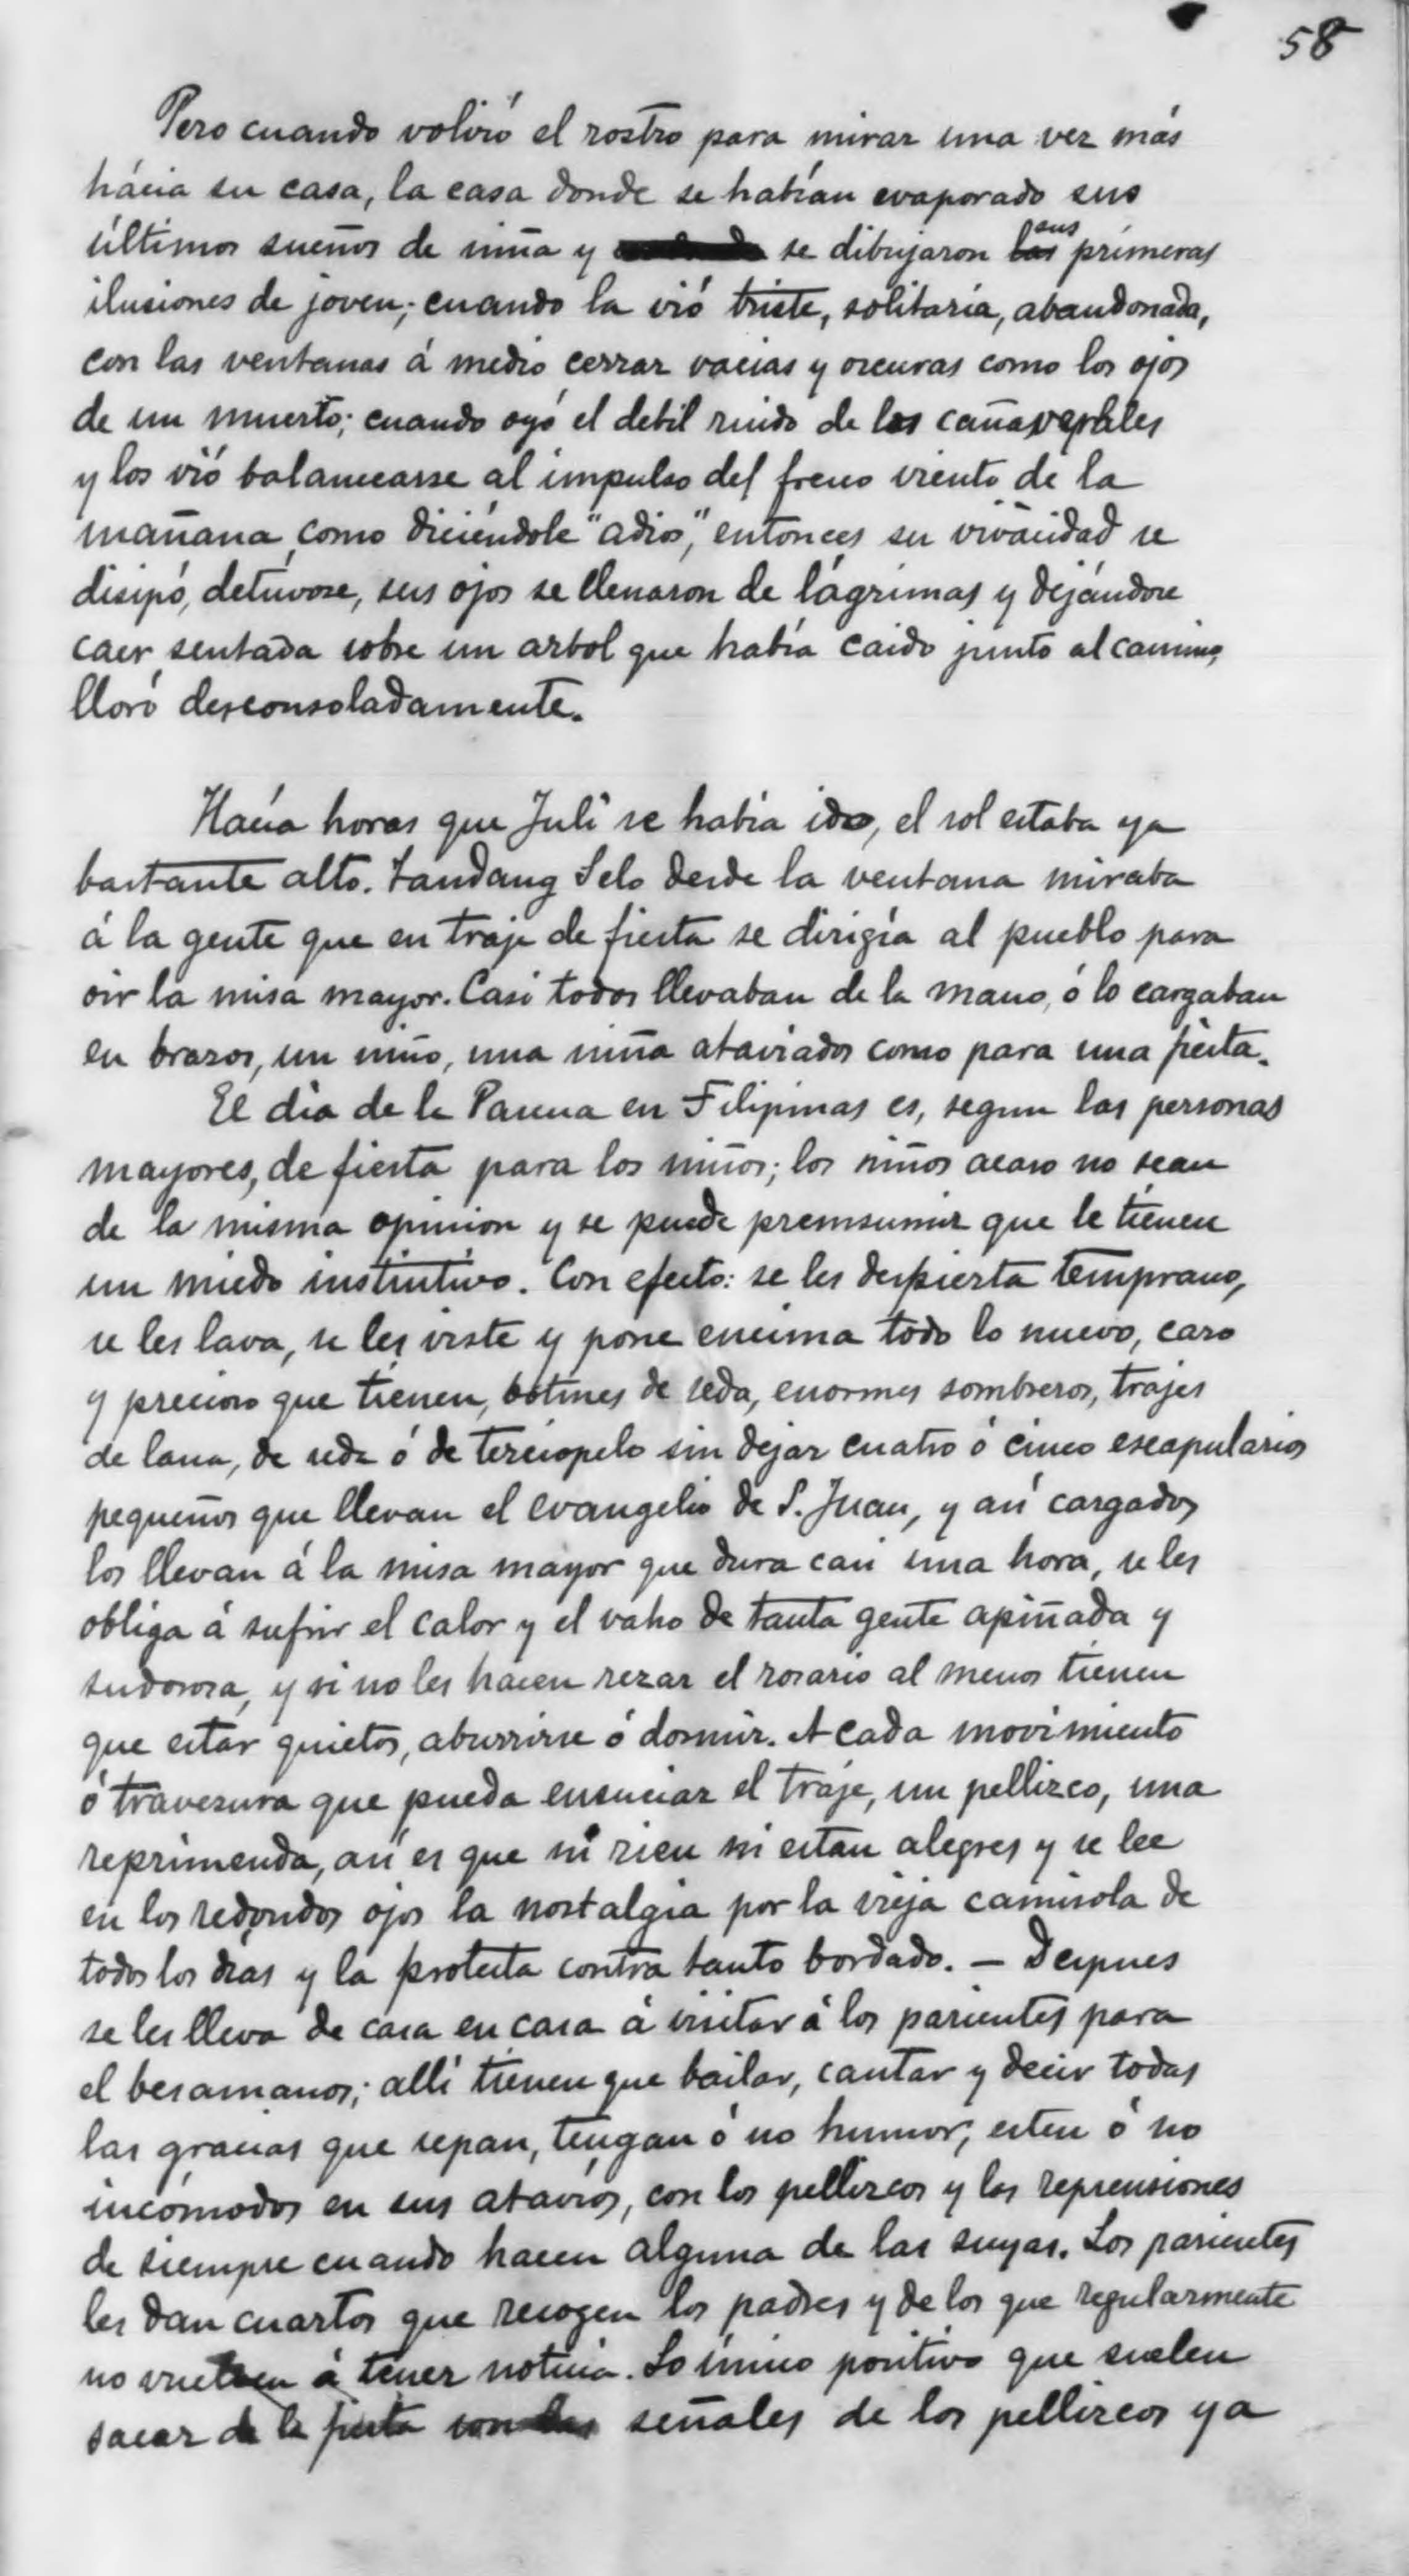 58
Pero cuando volvió el rostro para mirar una vez más
hácia su casa, la casa donde se habían evaporado sus
últimos sueños de niña y se dibujaron las sus primeras
ilusiones de joven; cuando la vió triste, solitaria, abandonada,
con las ventanas á medio cerrar vacias y oscuras como los ojos
de un muerto; cuando oyó el debil ruido de los cañaverales
y los vió balancearse al impulso del fresco viento de la
mañana como diciéndole "adios," entonces su vivacidad se
disipó, detúvose, sus ojos se llenaron de lágrimas y dejándose
caer sentada sobre un arbol que habia caido junto al camino,
lloró desconsoladamente.
Hacía horas que Julî se habia ido, el sol estaba ya
bastante alto. Tandang Selo desde la ventana miraba
á la gente que en traje de fiesta se dirigía al pueblo para
oir la misa mayor. Casi todos llevaban de la mano, ó lo cargaban
en brazos, un niño, una niña ataviados como para una fiesta.
El día de la Pascua en Filipinas es, segun las personas
mayores, de fiesta para los niños; los niños acaso no sean
de la misma opinion y se puede premsumir que le tienen
un miedo instintivo. Con efecto: se les despierta temprano,
se les lava, se les viste y pone encima todo lo nuevo, caro
y precioso que tienen, botines de seda, enormes sombreros, trajes
de lana, de seda ó de terciopelo sin dejar cuatro ó cinco escapularios
pequeños que llevan el evangelio de S. Juan, y así cargados
los llevan á la misa mayor que dura casi una hora, se les
obliga á sufrir el calor y el vaho de tanta gente apiñada y
sudorosa, y si no les hacen rezar el rosario al menos tienen
que estar quietos, aburrirse ó dormir. A cada movimiento
ó travesura que pueda ensuciar el traje, un pellizco, una
reprimenda, así es que ni rien ni estan alegres y se lee
en los redondos ojos la nostalgia por la vieja camisola de
todos los dias y la protesta contra tanto bordado. — Despues
se les lleva de casa en casa á visitar á los parientes para
el besamanos; allí tienen que bailar, cantar y decir todas
las gracias que sepan, tengan ó no humor, esten ó no
incómodos en sus atavíos, con los pellizcos y las reprensiones
de siempre cuando hacen alguna de las suyas. Los parientes
les dan cuartos que recogen los padres y de los que regularmente
no vuelven á tener noticia. Lo único positivo que suelen
sacar de la fiesta son las señales de los pellizcos ya